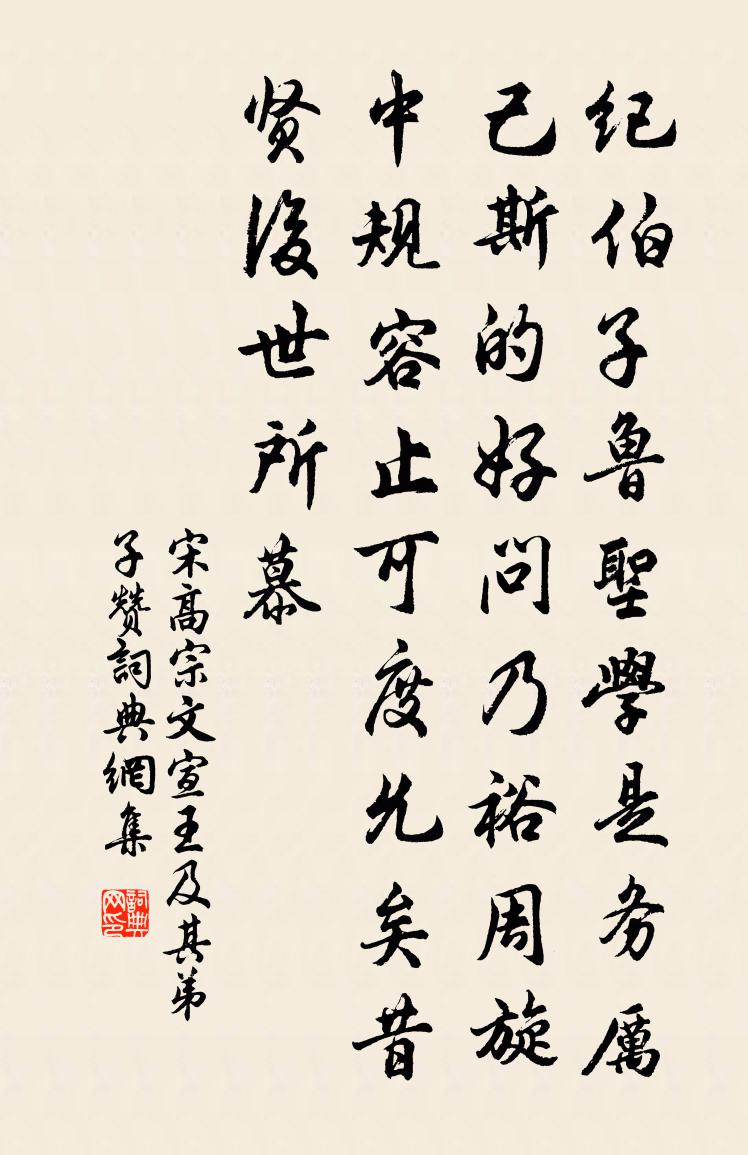 纪伯子鲁聖學是务厲
己斯的好問乃裕周旋
中規容止可度允矣昔
贤後世所慕
宋高宗文宣王及其弟
子赞詞典網集
詞典网印